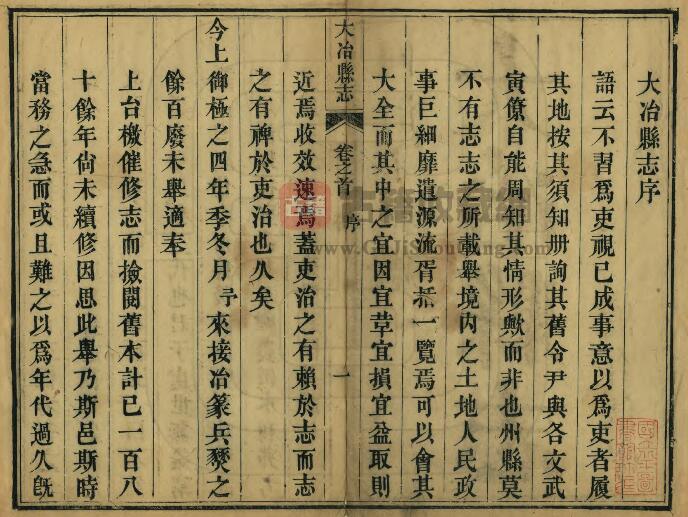 大冶縣志序
語云不習爲吏視已成事意以爲吏者履
其地按其須知册詢其舊令尹與各文武
寅僚自能周知其情形歟而非也州縣莫
不有志志之所載舉境内之土地人民政
事巨細靡遺源流胥括一覽焉可以會其
大全而其中之宜因宜革宜損宜益取則
大冶縣志
卷之首
序
一
近焉收效速焉蓋吏治之有賴於志而志
之有裨於吏治也久矣
今上御極之四年季冬月予來接冶篆兵燹之
餘百廢未舉適奉
上台檄催修志而撿閱舊本計已一百八
十餘年尙未續修因思此舉乃斯邑斯時
當務之急而或且難之以爲年代過久旣
古籍收藏網